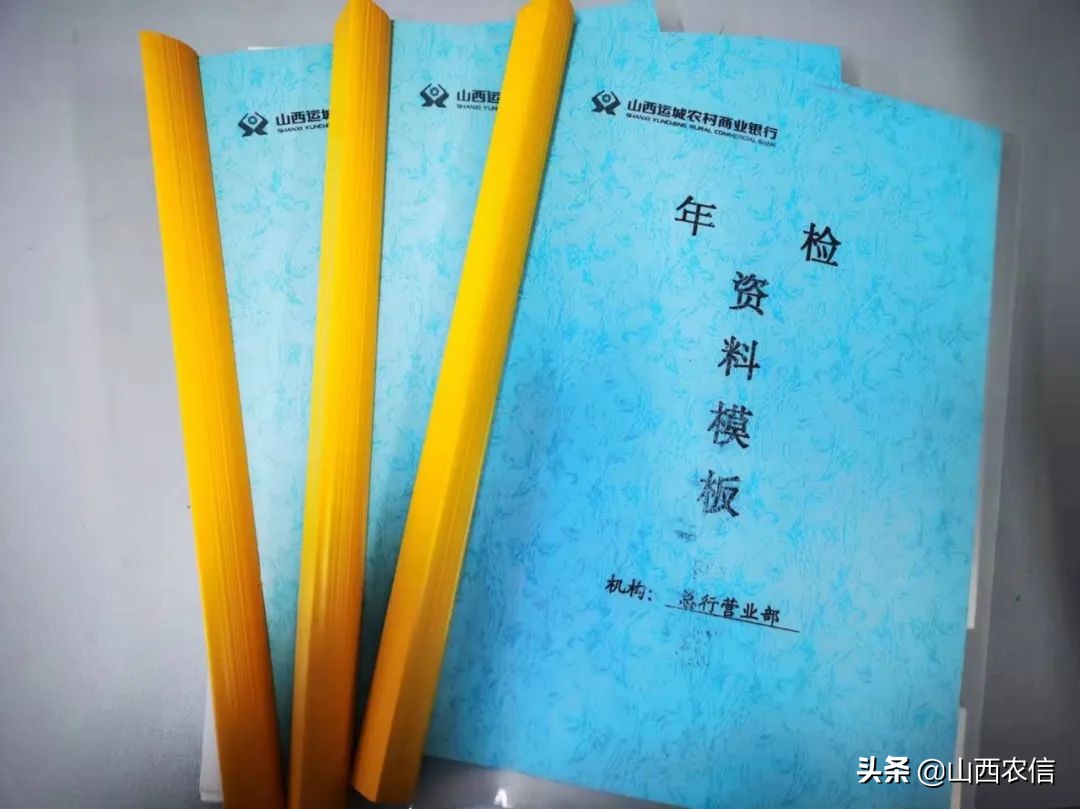 山西运城
SHANXI YUNCH
山西运
SHANXI YUN
山西运城农村商业银行
SHANXI YUNCHENG RURAL COMMERCIAL BANK
年 检
资
料
模
板
机构：总行营业部
头条 @山西农信